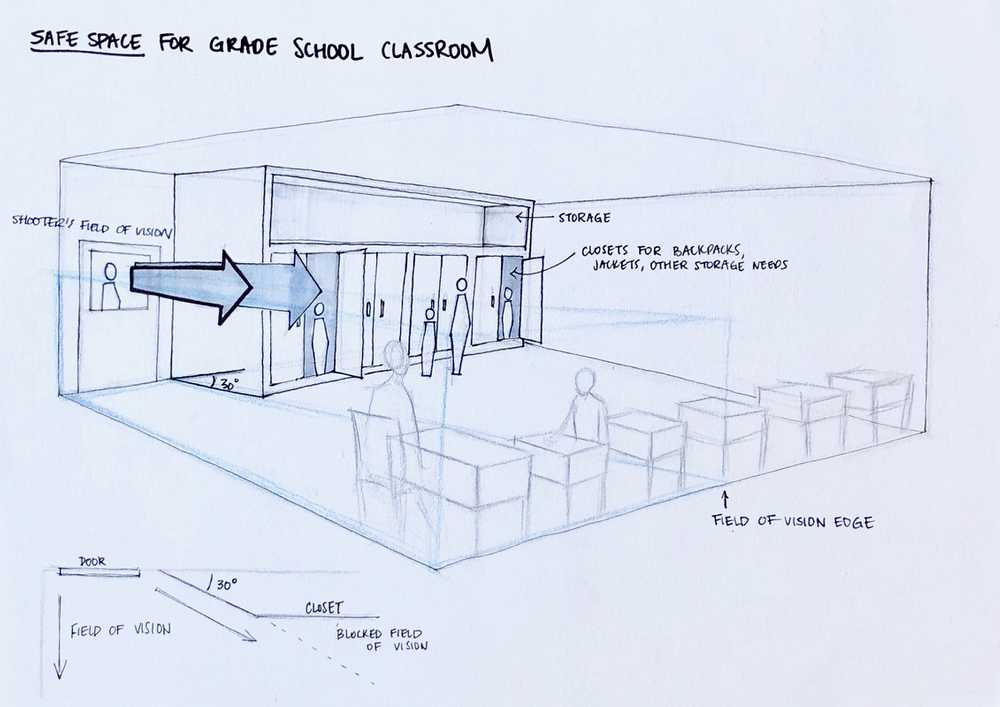 SAFE SPACE FOR GRADE SCHOOL CLASSROOM
SHOOTER'S FIELD OF VISION
STORAGE
CLOSETS FOR BACKPACKS,
JACKETS, OTHER STORAGE NEEDS
30°
FIELD OF VISION EDGE
DOOR
30°
CLOSET
FIELD OF VISION
BLOCKED FIELD
OF VISION